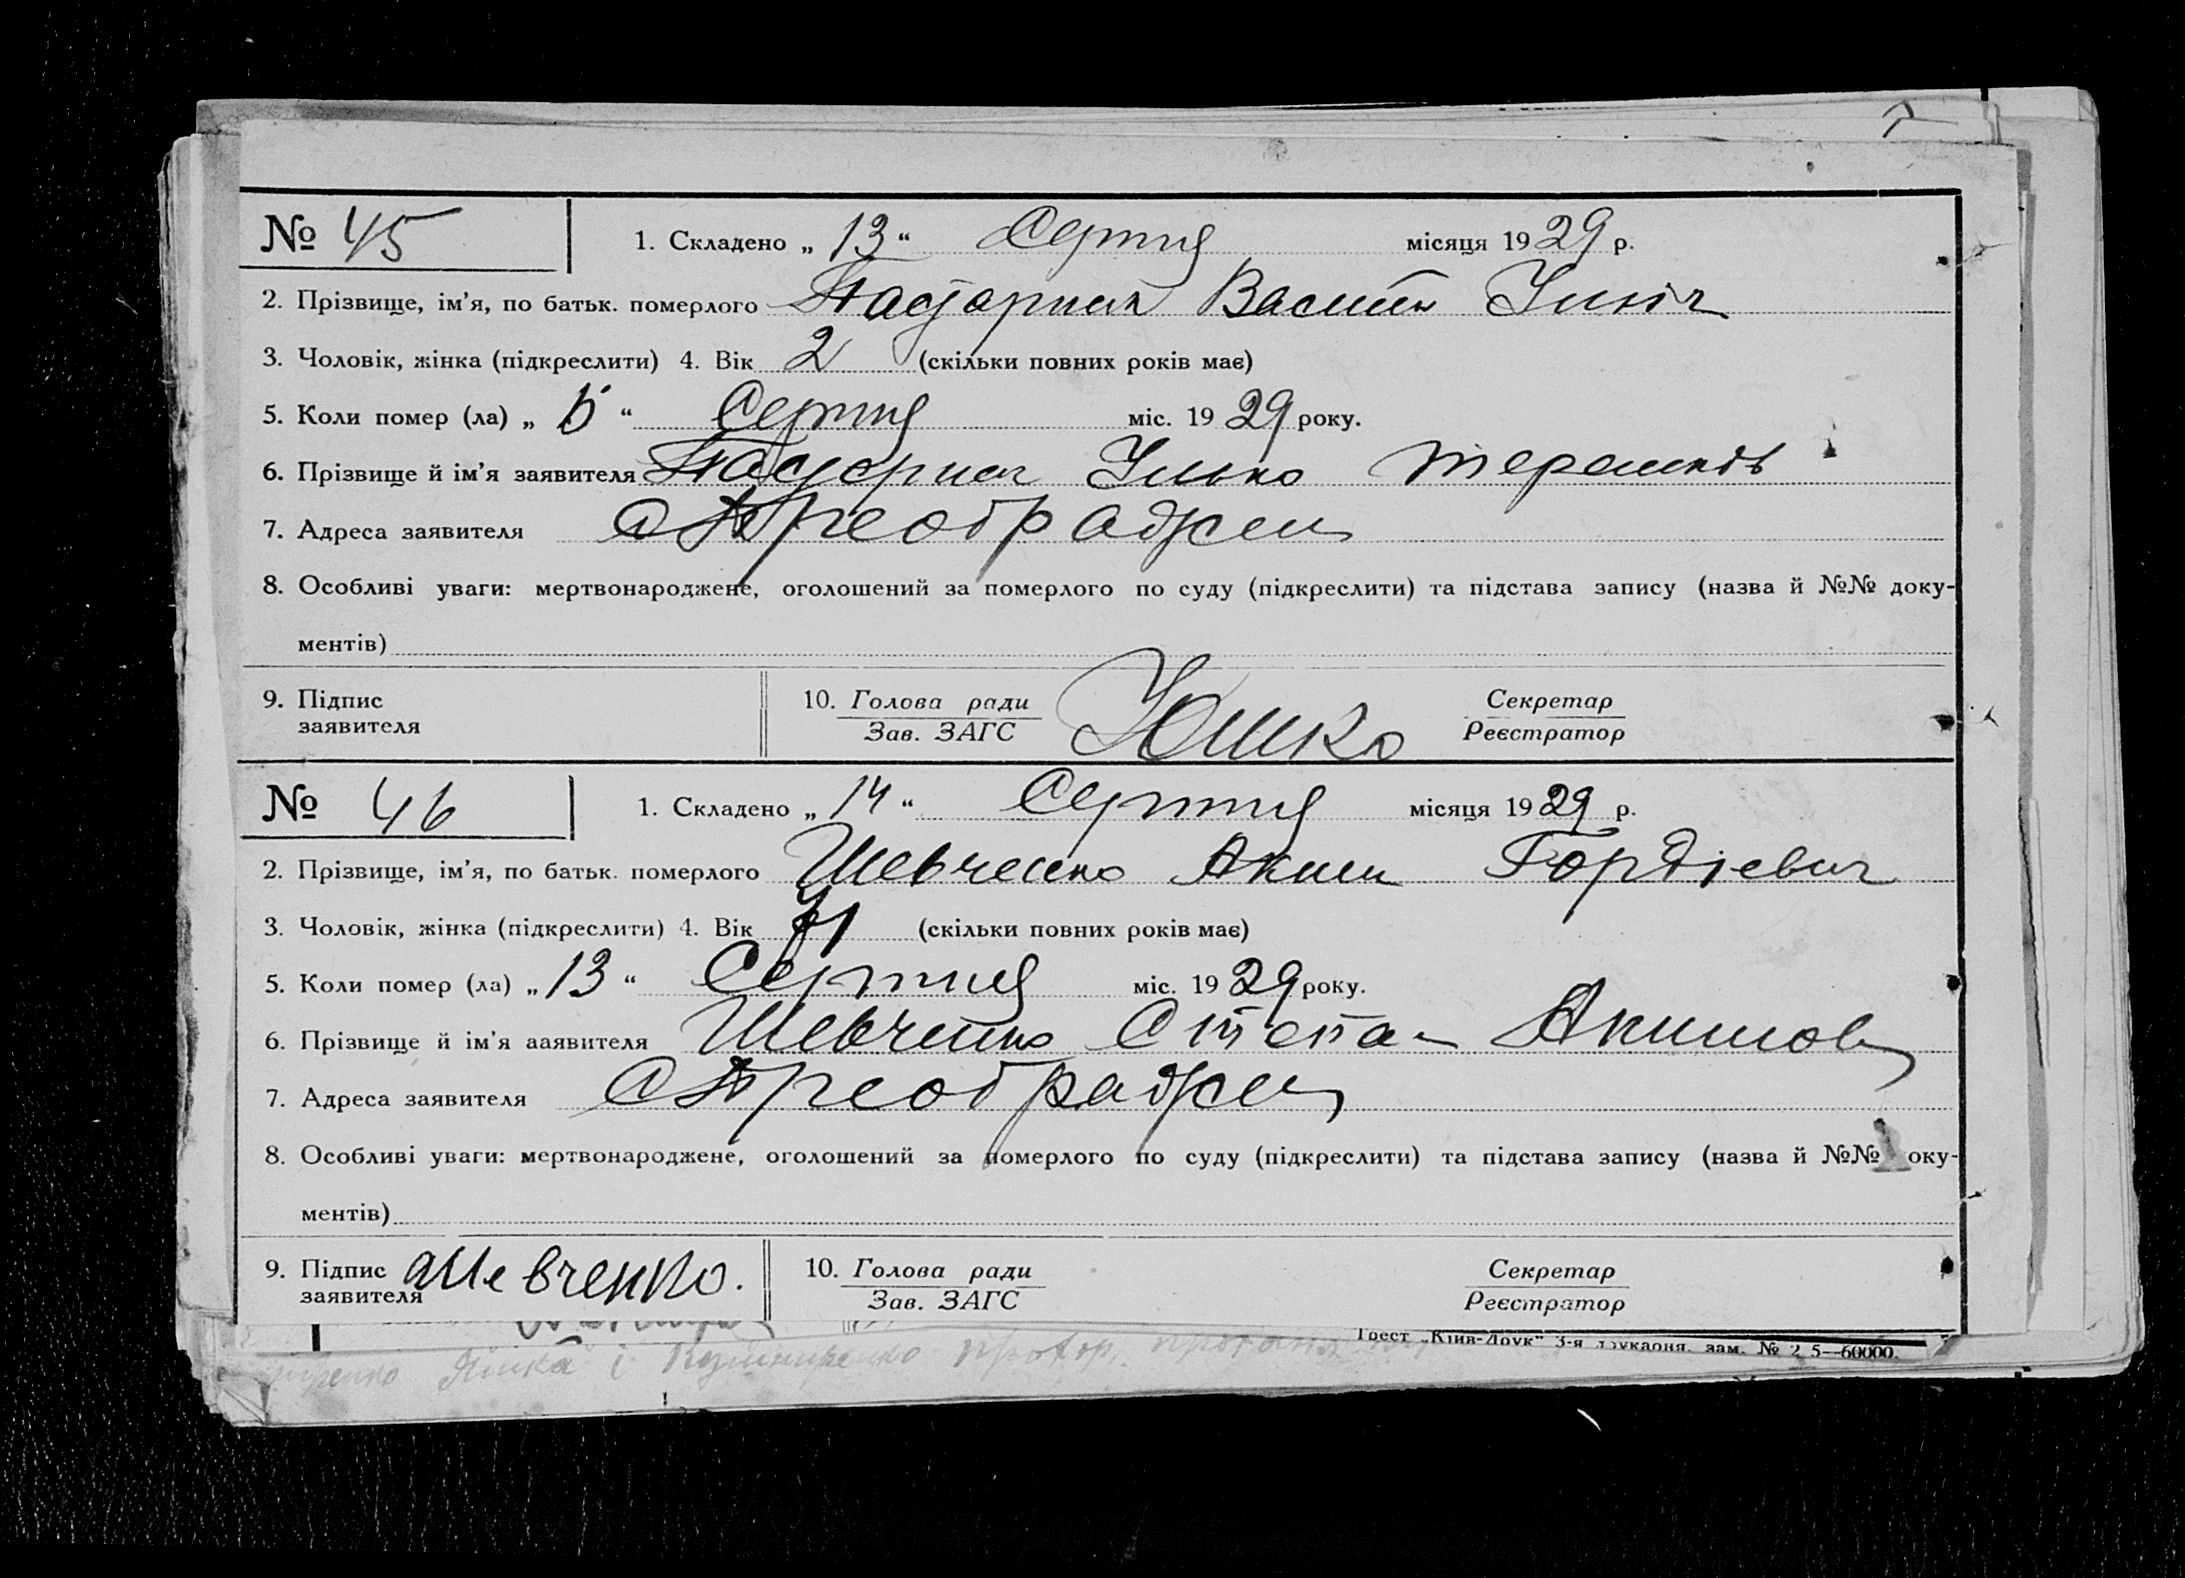 № 45 1. Складено „ 13 “ Серпня місяця 1929 р.
2. Прізвище, ім’я, по батьк. померлого Василь
3. Чоловік, жінка (підкреслити) 4. Вік 2 (скільки повних років має)
5. Коли помер (ла) „ “ Серпня міс. 1929 року.
6. Прізвище й ім’я заявителя Ілько
7. Адреса заявителя с Преображен
8. Особливі уваги: мертвонароджене, оголошений за померлого по суду (підкреслити) та підстава запису (назва й №№ доку-
ментів)
9. Підпис заявителя 10. Голова ради Зав. ЗАГС Юшко Секретар Реєстратор
№ 46 1. Складено „ 14 “ Серпня місяця 1929 р.
2. Прізвище, ім’я, по батьк. померлого Шевченко Аким Гордієвич
3. Чоловік, жінка (підкреслити) 4. Вік (скільки повних років має)
5. Коли помер (ла) „ 13 “ Серпня міс. 1929 року.
6. Прізвище й ім’я заявителя Шевченко Степан Акимов
7. Адреса заявителя с Преображен
8. Особливі уваги: мертвонароджене, оголошений за померлого по суду (підкреслити) та підстава запису (назва й №№ оку-
ментів)
9. Підпис заявителя Шевченко. 10. Голова ради Зав. ЗАГС Секретар Реєстратор
Трест „Київ-Друк“ 3-я друкарня, зам. № 60000.